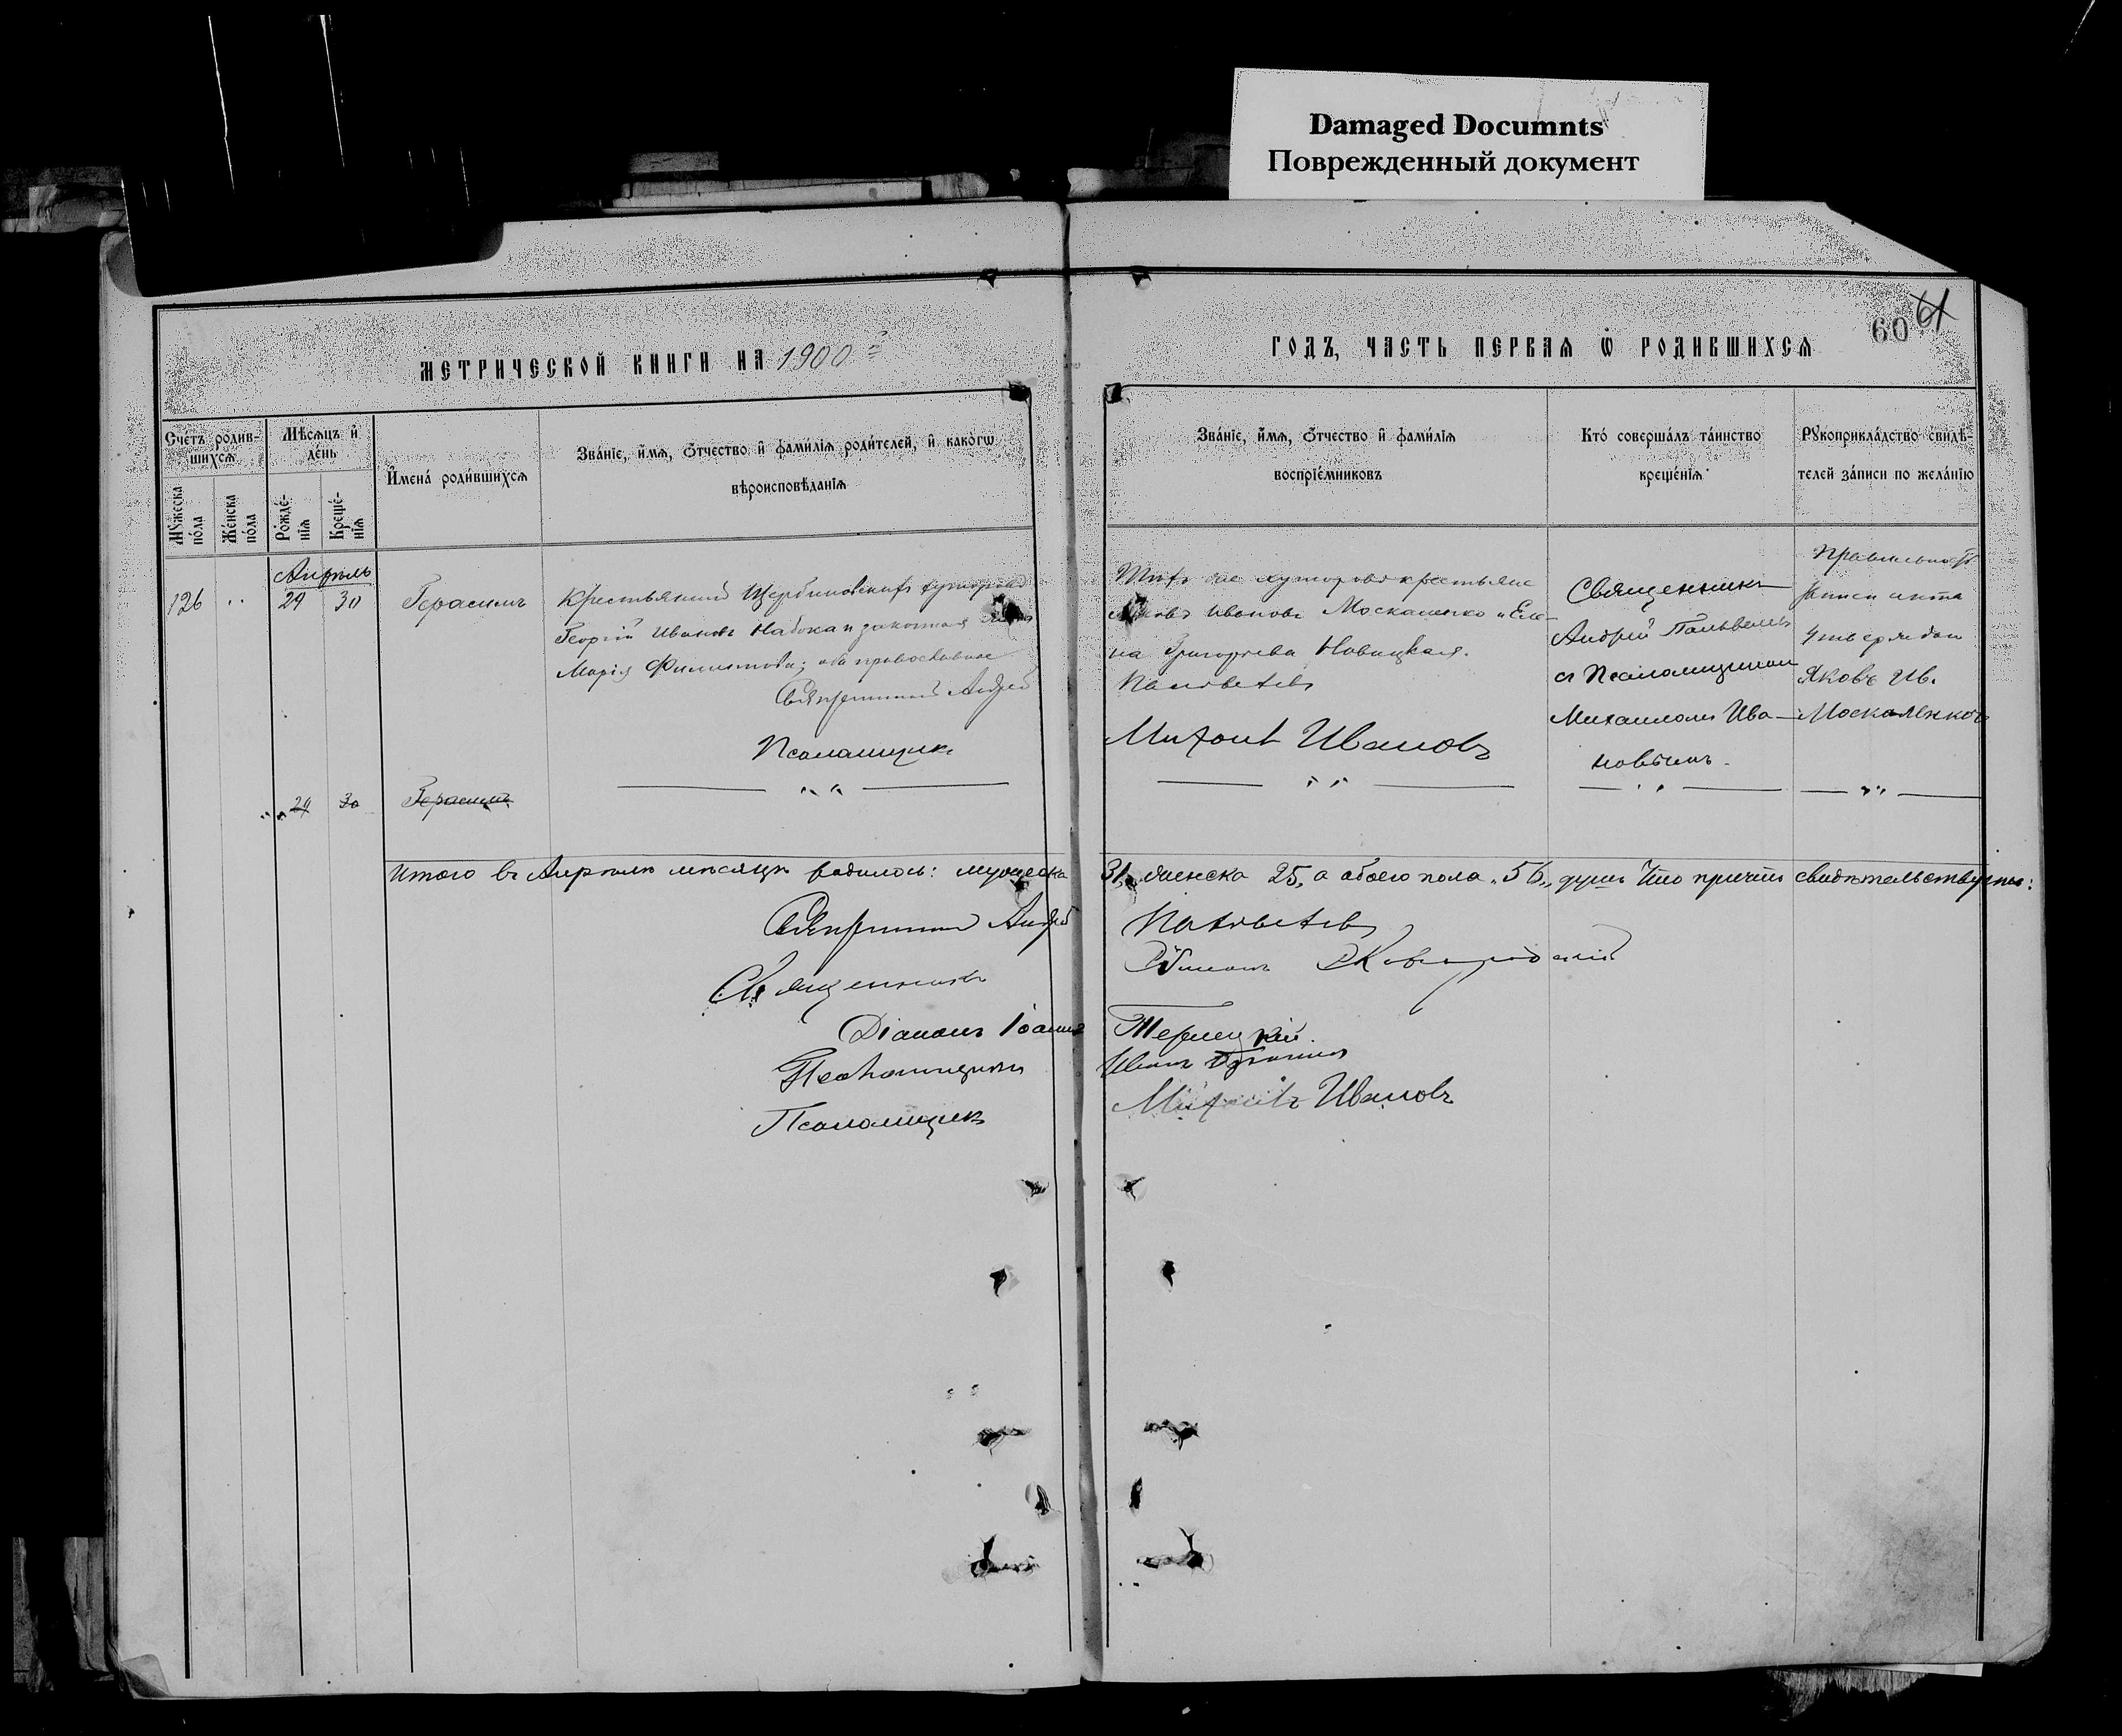 Damaged Documnts
Поврежденный документ
60 61
МЕТРИЧЕСКОЙ КНИГИ НА 1900 й
ГОДЪ, ЧАСТЬ ПЕРВАЯ Ѡ РОДИВШИХСЯ
Счетъ родив-
шихся
Мѣсяцъ и
день
Мужеска пола
Женска пола
Рожде-
нія
Креще-
нія
Имена родившихся
Званіе, имя, отчество и фамилія родителей, и какогѡ
вѣроисповѣданія
Званіе, имя, отчество и фамилія
воспріемниковъ
Кто совершалъ таинство
крещенія
Рукоприкладство свидѣ-
телей записи по желанію
Апрѣль
126 " 29 30 Герасимъ
Крестьянинъ Щербиновскихъ хуторовъ
Георгій Ивановъ Набока и законная
Марія Филиппова; оба православные
Священникъ Андрей
Псаломщикъ
Тѣхъ же хуторовъ крестьяне
Ивановъ Москаленко и Еле-
на Григорьева Новицкая.
Михаилъ Ивановъ
Священникъ
Андрей
съ Псаломщикомъ
Михаиломъ Ива-
новымъ.
Правильность
записи акта
утверждаю
Яковъ Ив.
Москаленковъ
29 30 Герасимъ
Итого въ Апрѣлѣ мѣсяцѣ родилось: мужеска 31, женска 25, а обоего пола "56" душъ Что причтъ свидѣтельствуетъ:
Священникъ Андрей
Священникъ
Діаконъ Іоаннъ Терлецкій.
Псаломщикъ Иванъ
Псаломщикъ Михаилъ Ивановъ